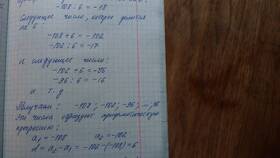 -108 : 6 = -18
Следующее число, которое делится
на 6
-108 + 6 = -102
-102 : 6 = -17
и следующее число:
-102 + 6 = -96
-96 : 6 = -16
и т. д
Получили: -108; -102; -96; ...; 96
Эти числа образуют арифметическую
прогрессию:
a₁ = -108 a₂ = -102
d = a₂ - a₁ = -102 - (-108) = 6